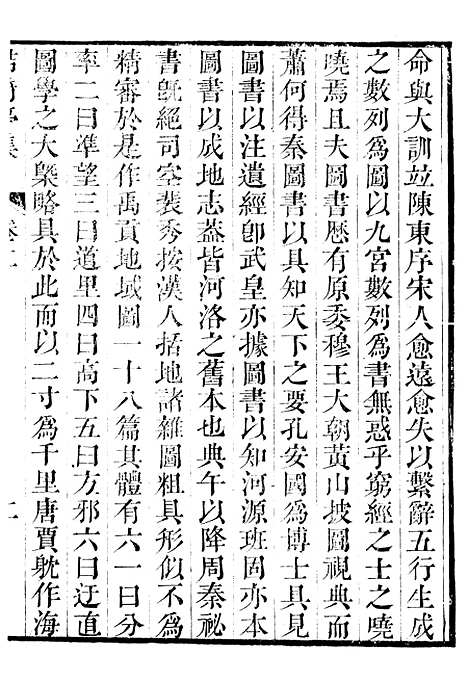 命與大訓竝陳東序宋人愈遠愈失以繫辭五行生成
之數列爲圖以九宮數列爲書無惑乎窮經之士之曉
曉焉且夫圖書歷有原委穆王大朝黃山披圖視典而
蕭何得秦圖書以具知天下之要孔安國爲博士具見
圖書以注遺經卽武皇亦據圖書以知河源班固亦本
圖書以成地志葢皆河洛之舊本也典午以降周秦祕
書旣絕司空裴秀按漢人括地諸雜圖粗具形似不爲
精審於是作禹貢地域圖一十八篇其體有六一曰分
率二曰準望三曰道里四曰高下五曰方邪六曰迂直
圖學之大槩略具於此而以二寸爲千里唐賈躭作海
卷二
二